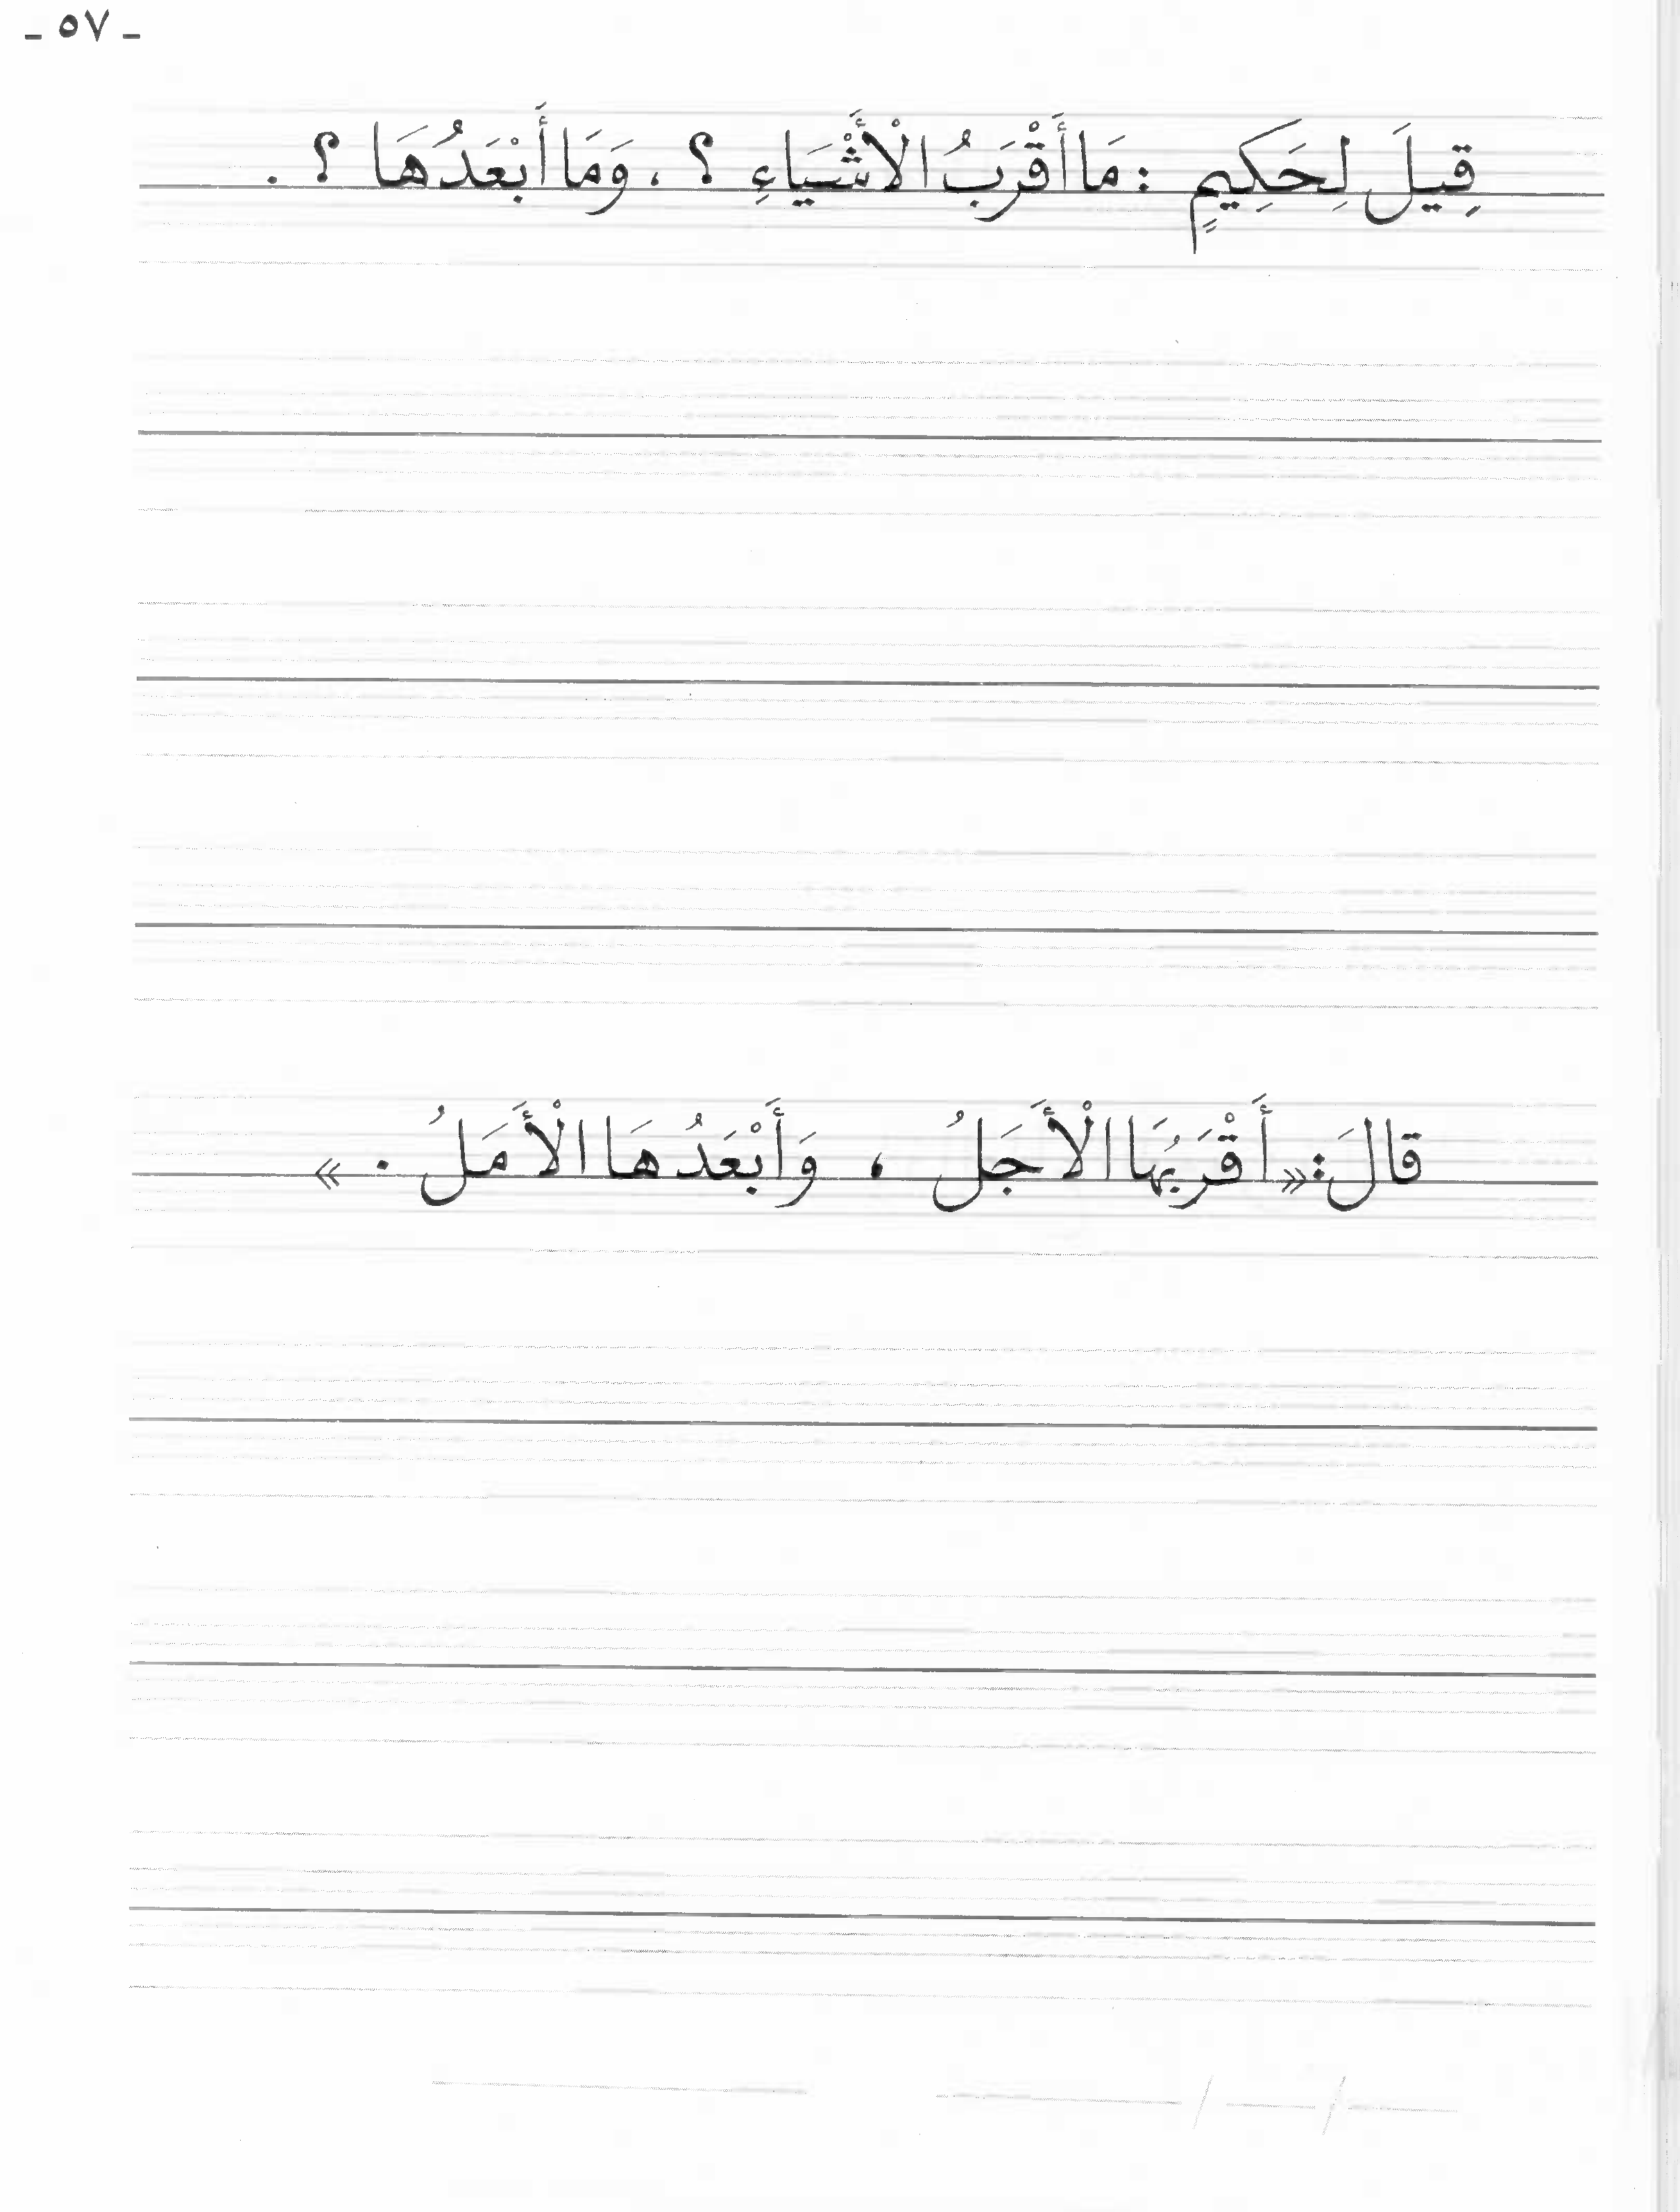 - ٥٧ -
قِيلَ لِحَكِيمٍ : مَا أَقْرَبُ الْأَشْيَاءِ ؟ ، وَمَا أَبْعَدُهَا ؟ .
قَالَ : « أَقْرَبُهَا الْأَجَلُ ، وَأَبْعَدُهَا الْأَمَلُ . »